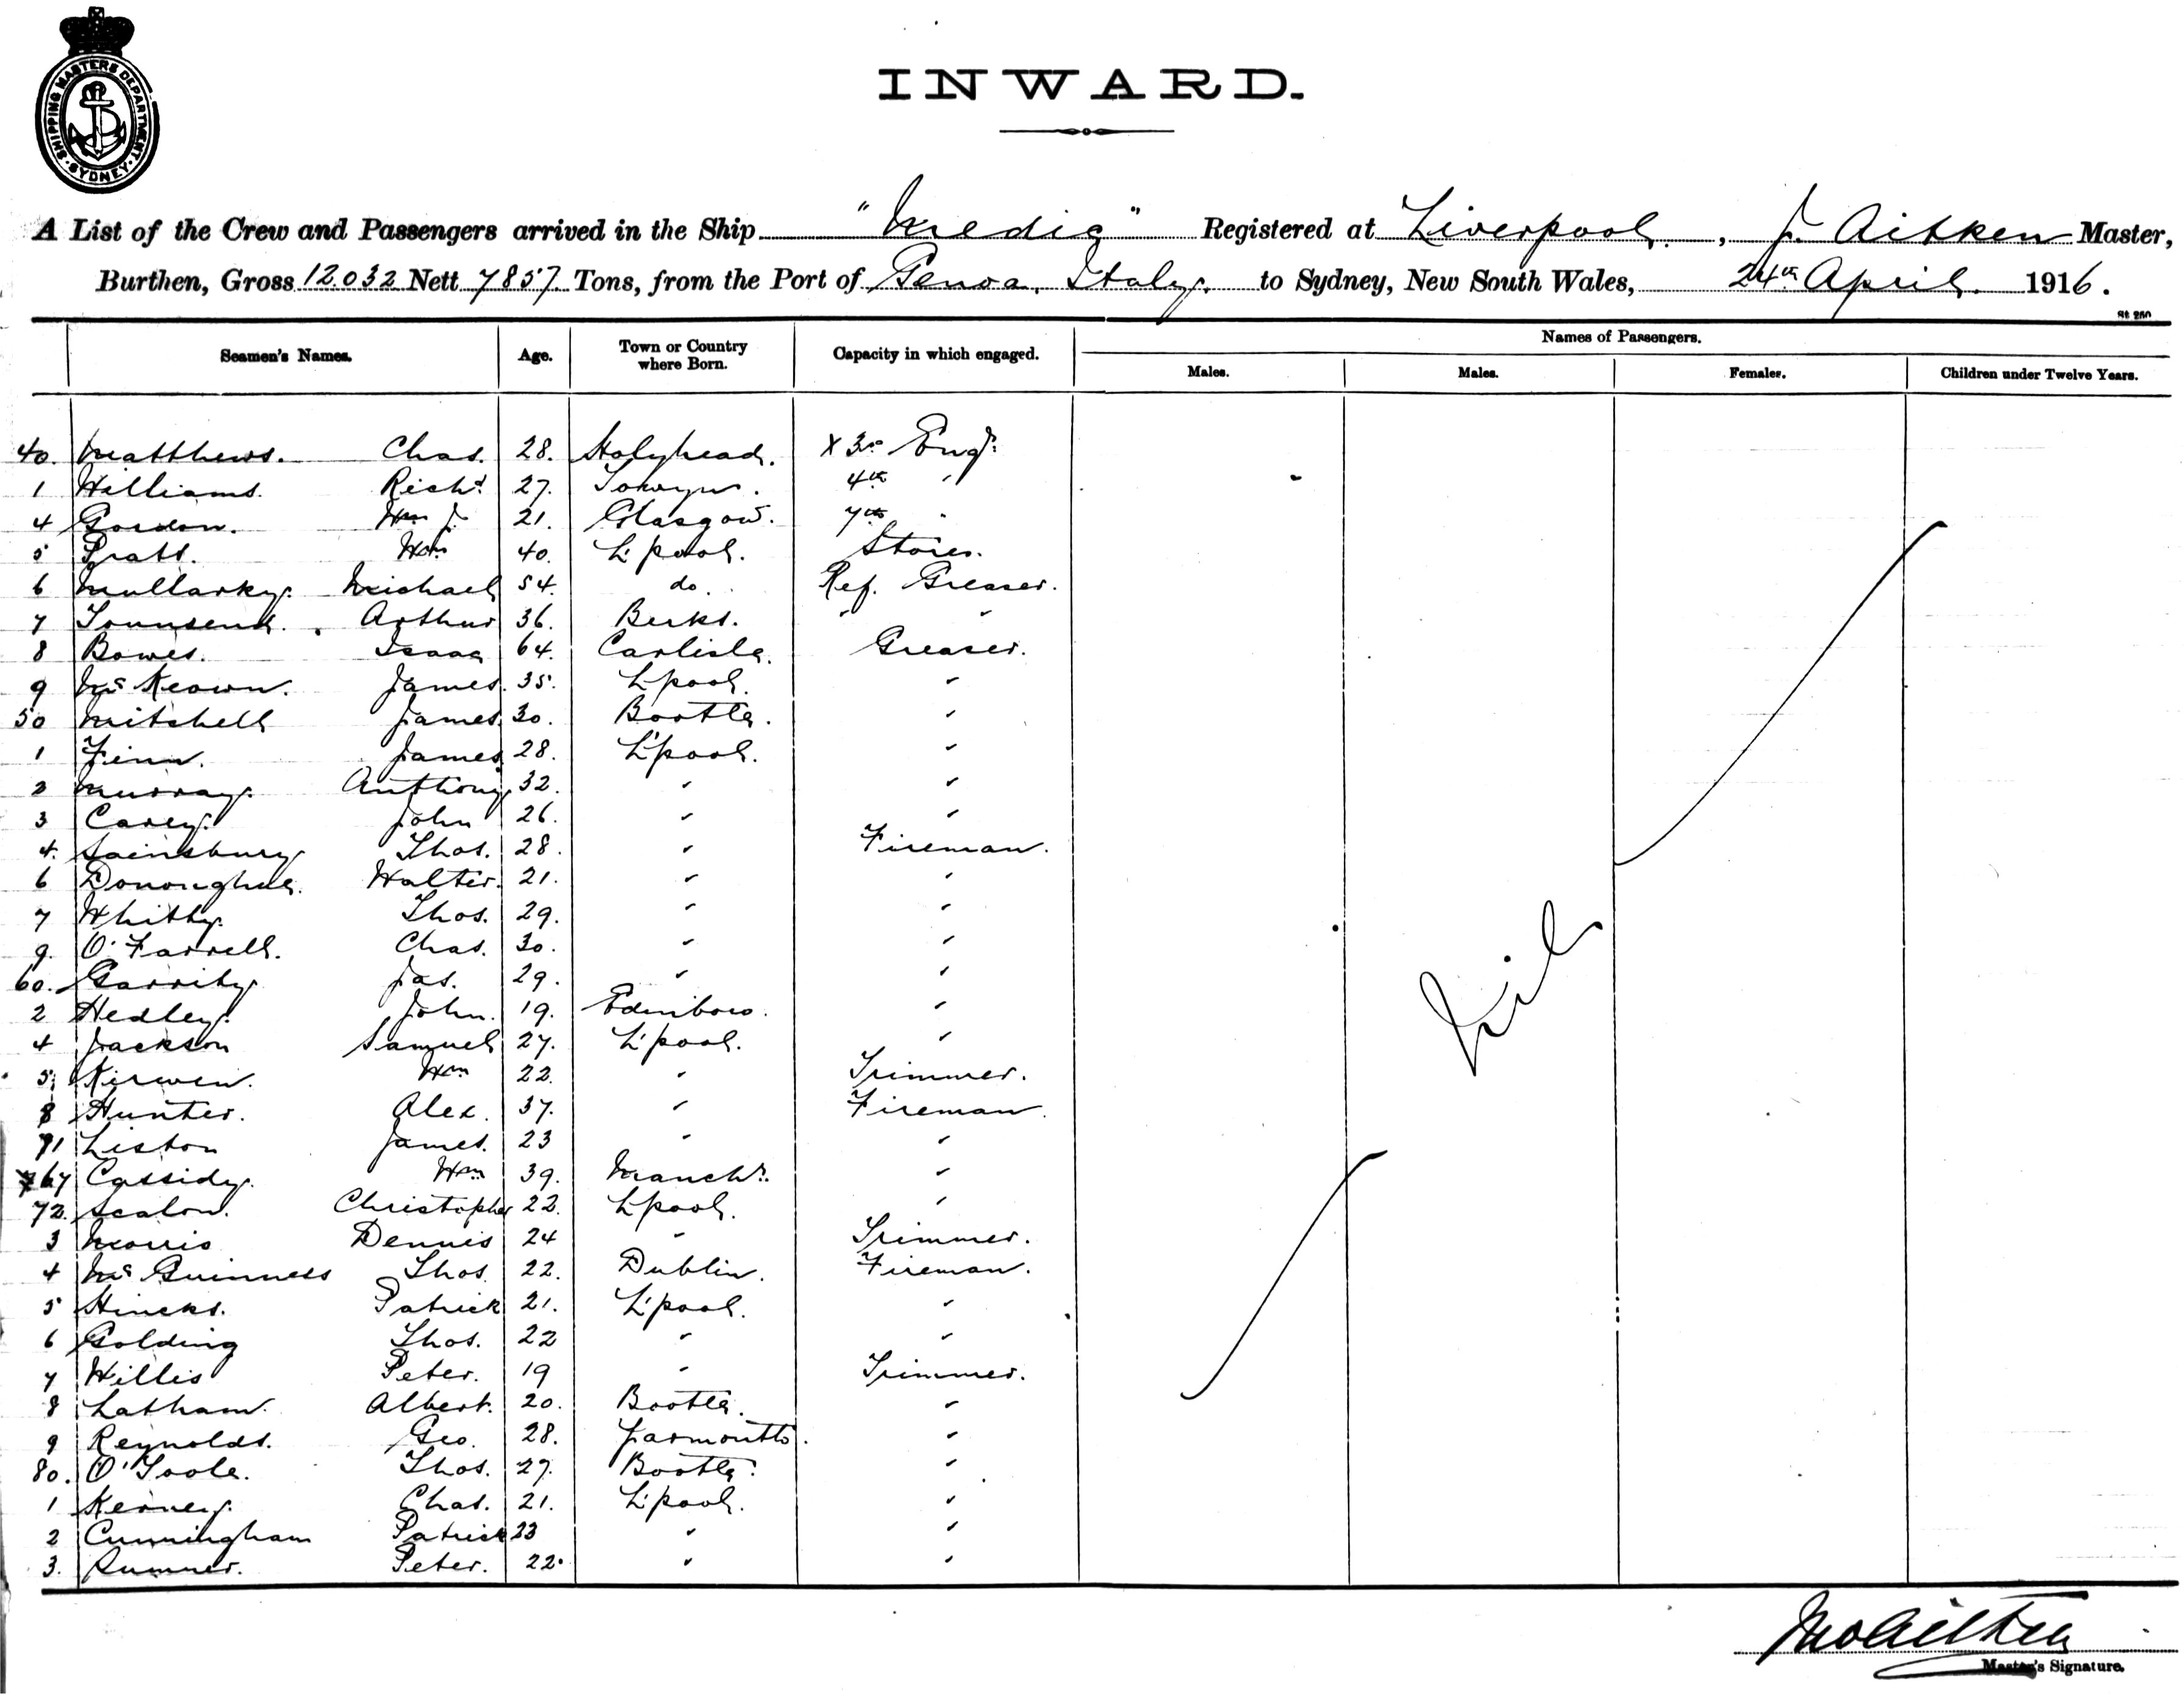 SHIPPING MASTERS DEPARTMENT · SYDNEY ·
INWARD.
A List of the Crew and Passengers arrived in the Ship "Medic" Registered at Liverpool, J. Aitken Master,
Burthen, Gross 12.032 Nett 7857 Tons, from the Port of Genoa, Italy. to Sydney, New South Wales, 24th April. 1916.
Seamen's Names. Age. Town or Country where Born. Capacity in which engaged. Names of Passengers.
Males. Males. Females. Children under Twelve Years.
40. Matthews. Chas. 28. Holyhead. X 3rd Engr.
1 Williams. Richd. 27. Towyn. 4th "
4 Gordon. Wm J. 21. Glasgow. 7th "
5 Pratt. Wm 40. L'pool. Stores.
6 Mullarky. Michael 54. do. Ref. Greaser.
7 Townsend. Arthur 36. Berks. " "
8 Bowes. Isaac 64. Carlisle. Greaser.
9 McKeown. James. 35. L'pool. "
50 Mitchell James. 30. Bootle. "
1 Finn. James. 28. L'pool. "
2 Murray. Anthony. 32. " "
3 Carey. John 26. " "
4. Sainsbury. Thos. 28. " Fireman.
6 Donoughue. Walter. 21. " "
7 Whitby. Thos. 29. " "
9. O'Farrell. Chas. 30. " "
60. Garrity. Jas. 29. " "
2 Hedley. John. 19. Edinboro. "
4 Jackson Samuel 27. L'pool. "
5 Kirwen. Wm 22. " Trimmer.
8 Hunter. Alex. 37. " Fireman.
71 Liston James. 23 " "
67 Cassidy. Wm 39. Manchr. "
72. Scalon. Christopher 22. L'pool. "
3 Morris Dennis 24 " Trimmer.
4 McGuinness Thos. 22. Dublin. Fireman.
5 Hincks. Patrick 21. L'pool. "
6 Golding Thos. 22 " "
7 Willis Peter. 19 " Trimmer.
8 Latham. Albert. 20. Bootle. "
9 Reynolds. Geo. 28. Yarmouth. "
80. O'Toole. Thos. 27. Bootle. "
1 Kerney. Chas. 21. L'pool. "
2 Cunningham Patrick 23 " "
3. Rumner. Peter. 22. " "
Nil
Jno Aitken
Master's Signature.